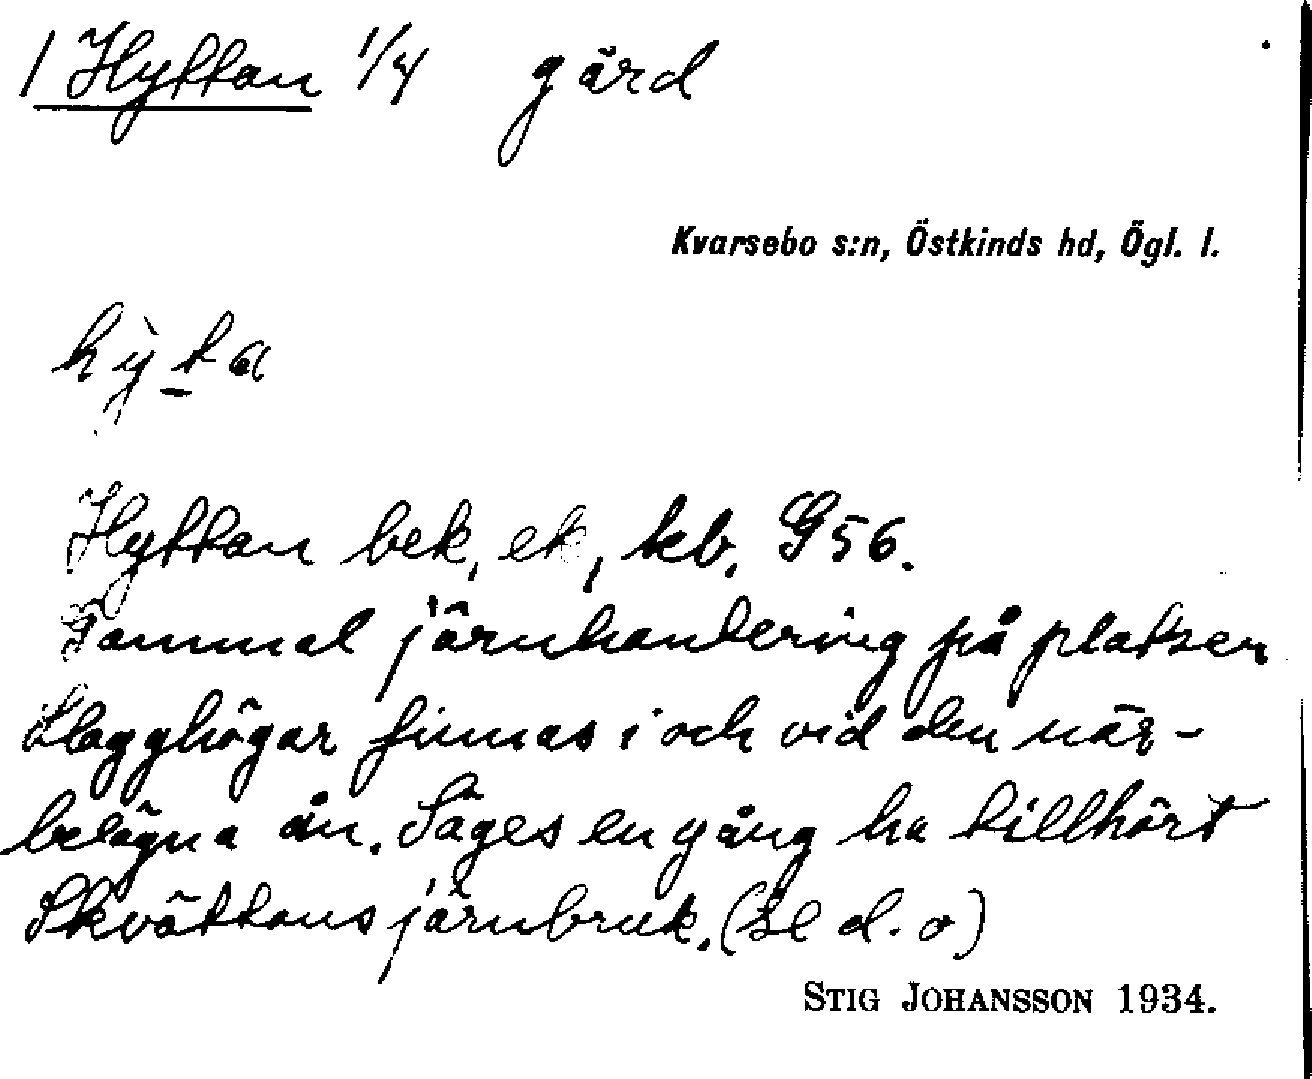 1 Hyttan 1/4 gård
Kvarsebo s:n, Östkinds hd, Ögl. l.
hỳta
Hyttan bek, ek, kb. G56.
Gammal järnhantering på platsen
Slagghögar finnas i och vid den när-
belägna ån. Säges en gång ha tillhört
Skvättans järnbruk. (se d. o)
STIG JOHANSSON 1934.